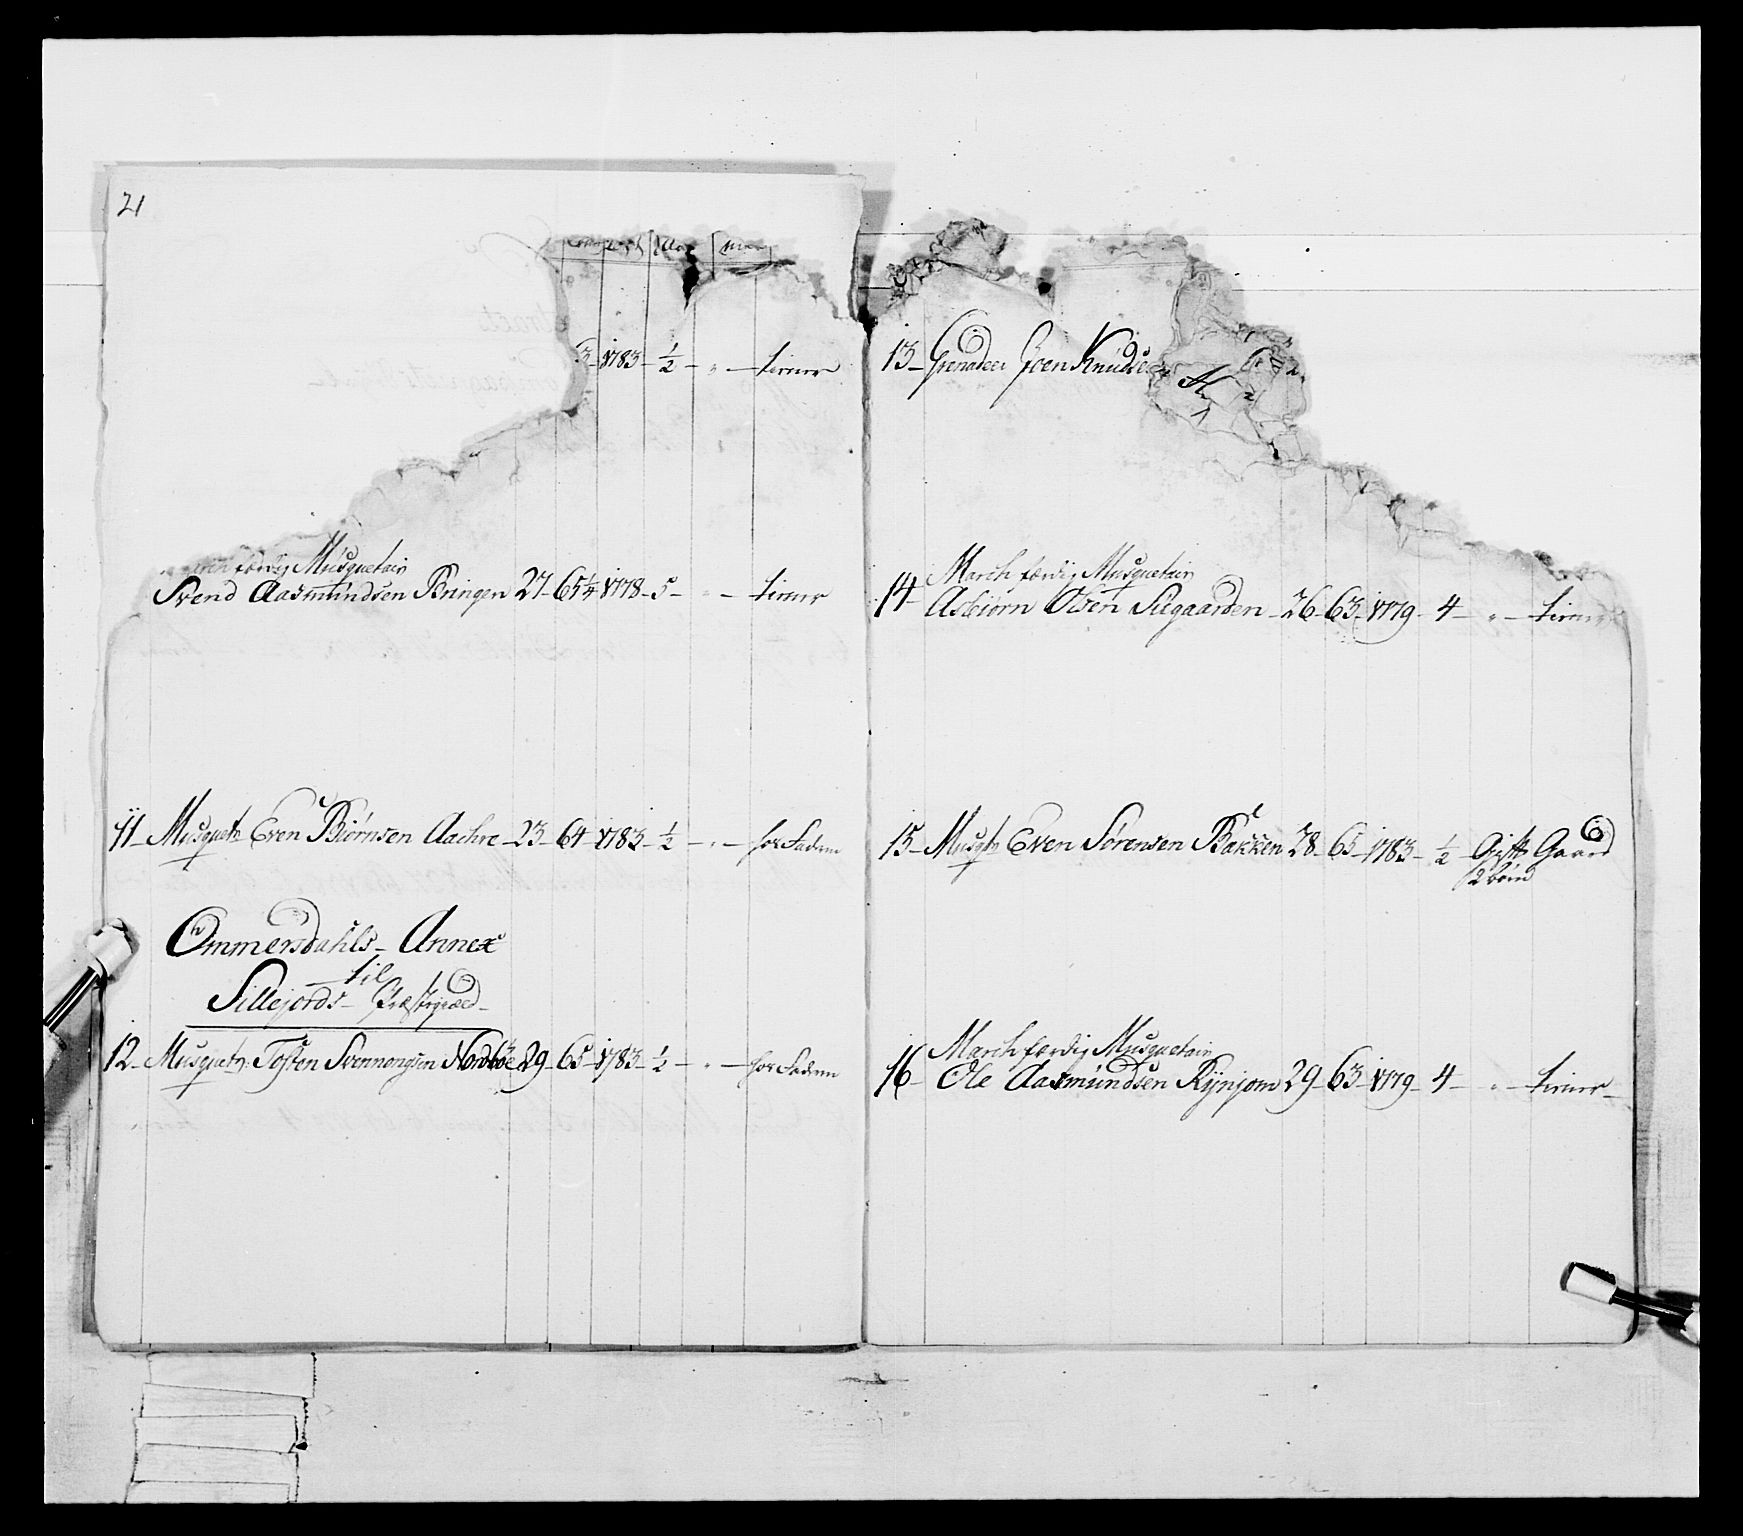 21
3 - 1783 - 1/2 - " - tiener
March færdig Musquetair
Svend Aasmundsen Bringen 27 - 65 1/4 - 1778 - 5 - " - tiener
11 - Musquetr Even Biörnsen Aachre - 23 - 64 - 1783 - 1/2 - " - hos Faderen
Ommersdahls - Annex
til
Sillejords - Præstegield -
12 - Musquetr Tosten Svennongsen Nordböe 29 - 65 - 1783 - 1/2 - " - hos Faderen
13 - Grenadeer Joen Knudse
March færdig Musquetair
14 - Asbiörn Olsen Siigaarden - 26 - 63 - 1779 - 4 - " - tiener
15 - Musqtr Even Sörensen Bakken 28 - 65 - 1783 - 1/2 - Gift Gaard
2 börn
March færdig Musquetair
16 - Ole Aasmundsen Rynjom 29 - 63 - 1779 - 4 - " - tiener -